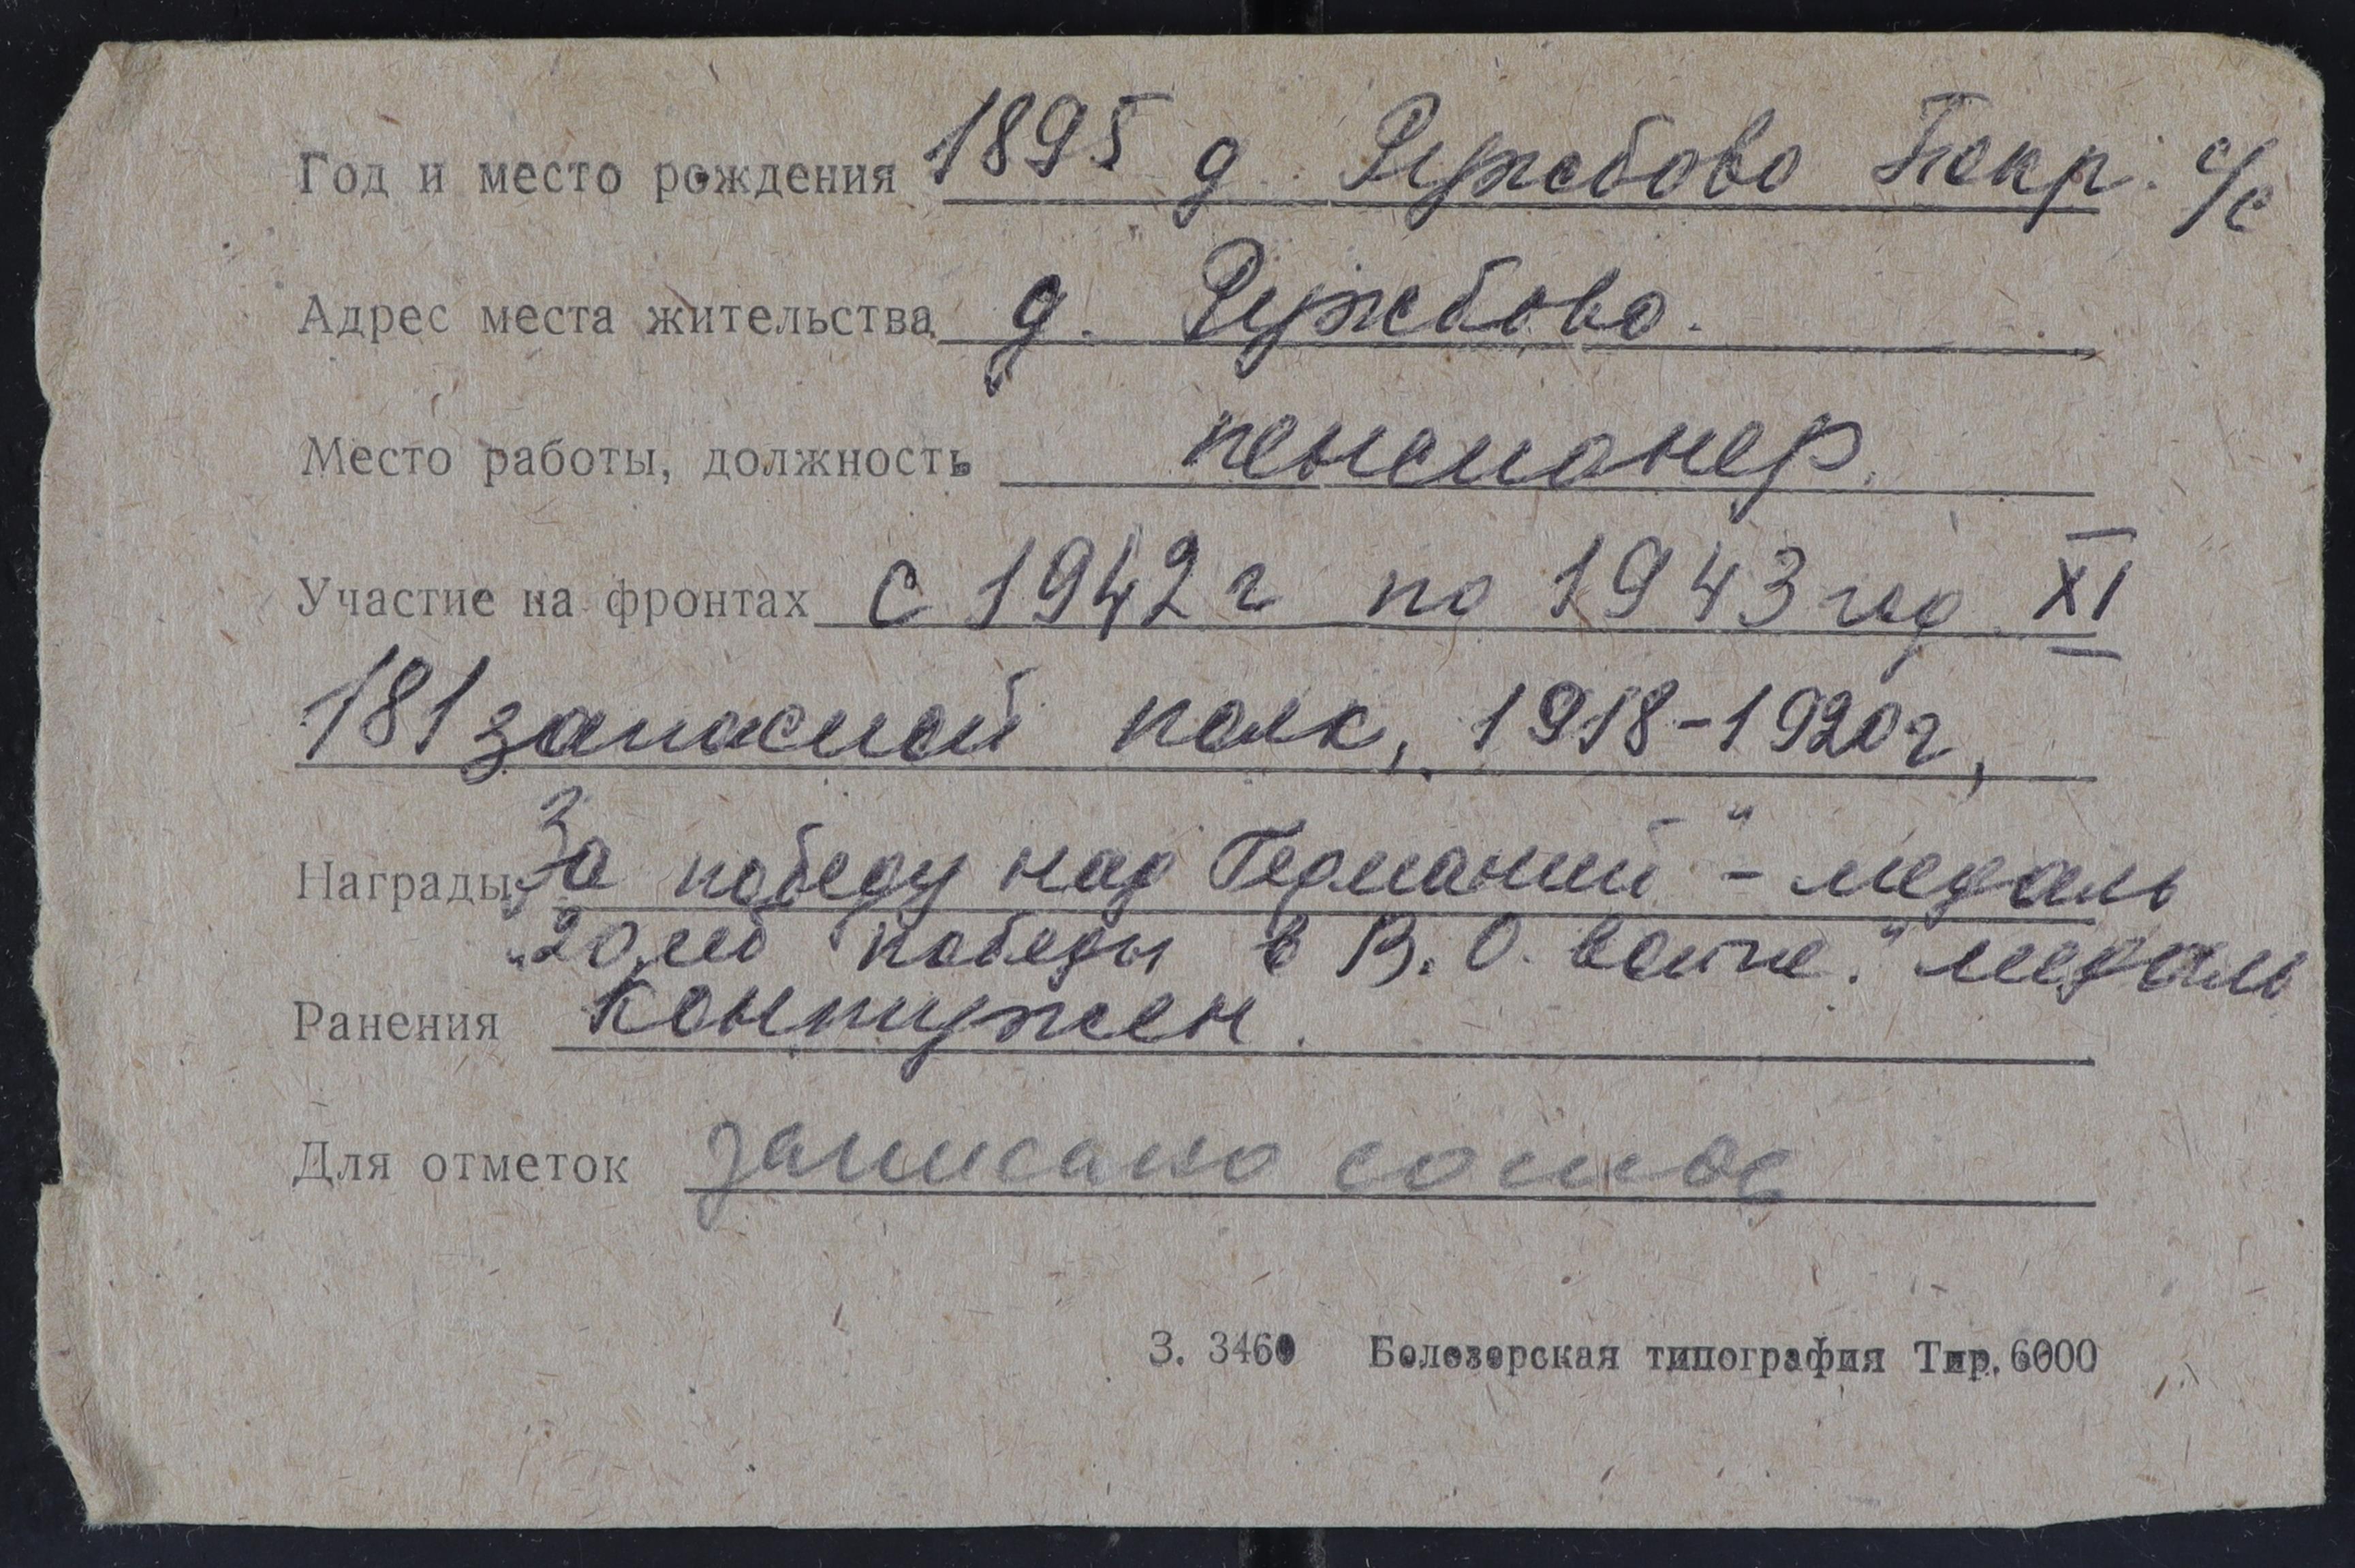 Год и место рождения 1895 д. Ружбово Покр. с/с
Адрес места жительства д. Ружбово.
Место работы, должность пенсионер.
Участие на фронтах с 1942 г по 1943 год XI
181 запасной полк, 1918-1920 г,
Награды „За победу над Германий" - медаль
„20 лет победы в В. О. войне." медаль
Ранения Контужен.
Для отметок записано
З. 3460 Белозерская типография Тир. 6000